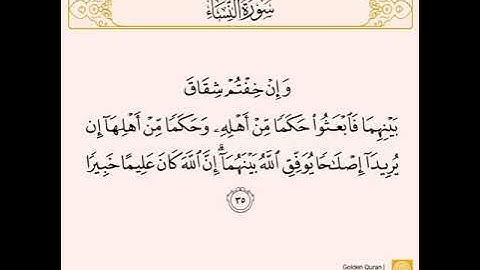 سُورَةُ النِّسَاءِ
وَإِنْ خِفْتُمْ شِقَاقَ
بَيْنِهِمَا فَٱبْعَثُوا۟ حَكَمًا مِّنْ أَهْلِهِۦ وَحَكَمًا مِّنْ أَهْلِهَآ إِن
يُرِيدَآ إِصْلَـٰحًا يُوَفِّقِ ٱللَّهُ بَيْنَهُمَآ ۗ إِنَّ ٱللَّهَ كَانَ عَلِيمًا خَبِيرًا
٣٥
Golden Quran |